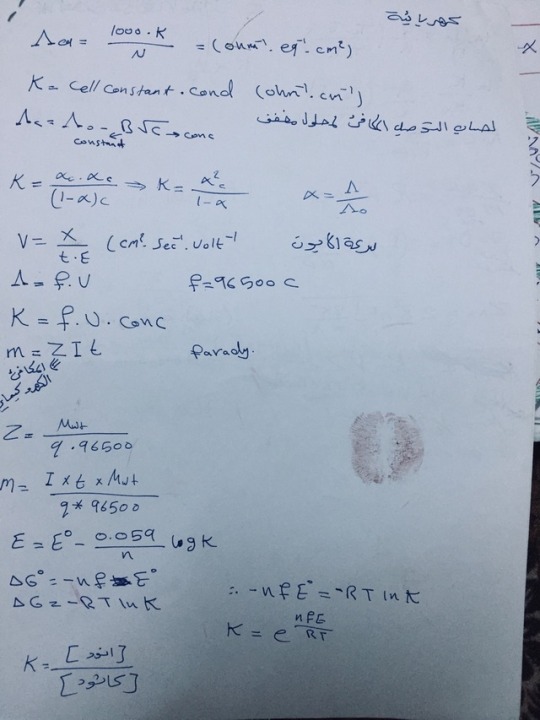 كهربائية
Λeq = 1000 . K / N = (ohm⁻¹ . eq⁻¹ . cm²)
K = Cell constant . cond (ohm⁻¹ . cm⁻¹)
Λc = Λ₀ - B√c → conc
constant
لحساب التوصيل المكافئ لمحلول مخفف
K = αc . αc / (1-α)c ⇒ K = α²c / 1-α α = Λ / Λ₀
V = X / t . E (cm² . sec⁻¹ . volt⁻¹ سرعة الأيون
Λ = f . U f = 96500 C
K = f . U . conc
m = Z I t farady.
المكافئ
الكهروكيميائي
Z = Mwt / q . 96500
m = I × t × Mwt / q * 96500
E = E° - 0.059 / n log K
ΔG° = -nf E°
ΔG = -RT ln K ∴ -nfE° = -RT ln K
K = e^(nfE / RT)
K = [انود] / [كاثود]